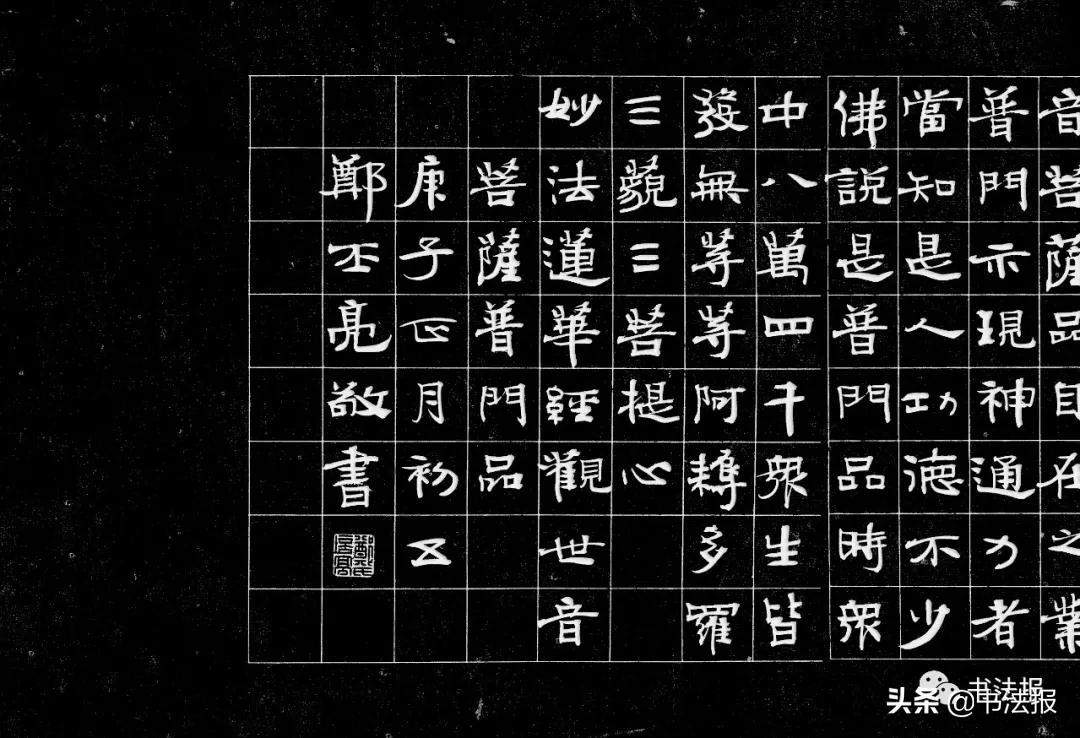 音菩薩品自在之業
普門示現神通力者
當知是人功德不少
佛說是普門品時眾
中八萬四千眾生皆
發無等等阿耨多羅
三藐三菩提心
妙法蓮華經觀世音
菩薩普門品
庚子正月初五
鄭丕亮敬書
书法报
头条@书法报